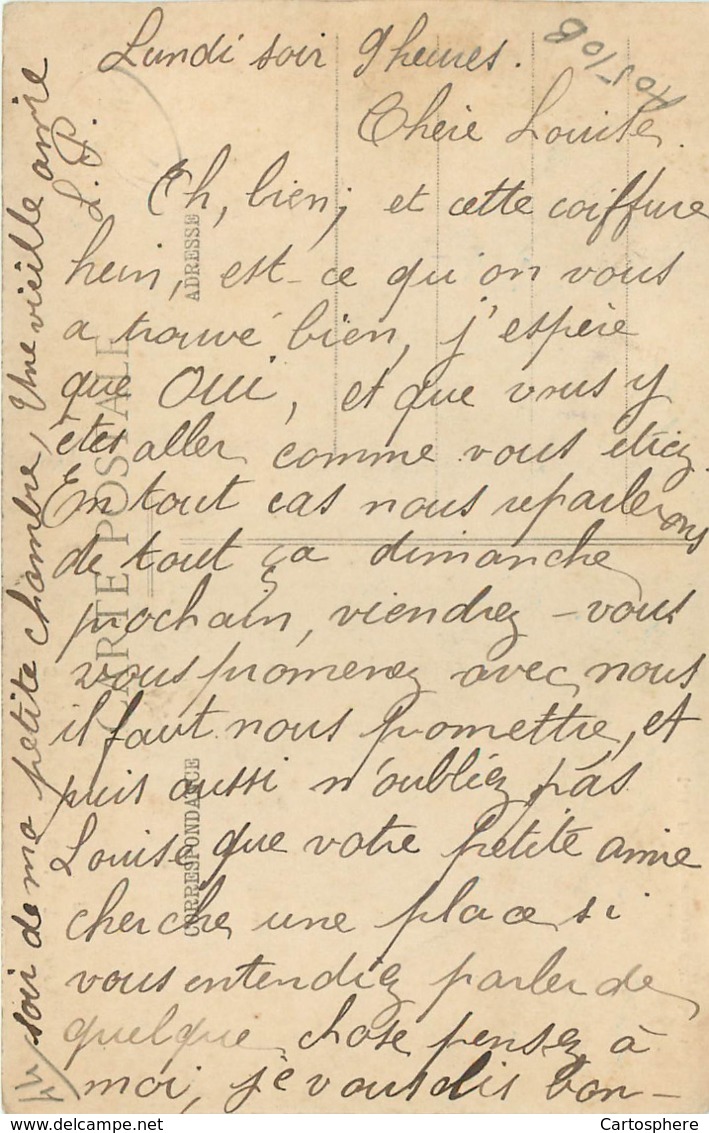 Lundi soir 9 heures.
Chère Louise.
Eh, bien, et cette coiffure
hein, est-ce qu'on vous
a trouvé bien, j'espère
que Oui, et que vous y
êtes aller comme vous étiez.
En tout cas nous reparlerons
de tout ça dimanche
prochain, viendrez-vous
vous promenez avec nous
il faut nous promettre, et
puis aussi n'oubliez pas
Louise que votre petite amie
cherche une place si
vous entendiez parler de
quelque chose pensez à
moi, je vous dis bon-
soir de ma petite chambre, Une vieille amie
L. P.
CARTE POSTALE
CORRESPONDANCE
ADRESSE
Cartosphere